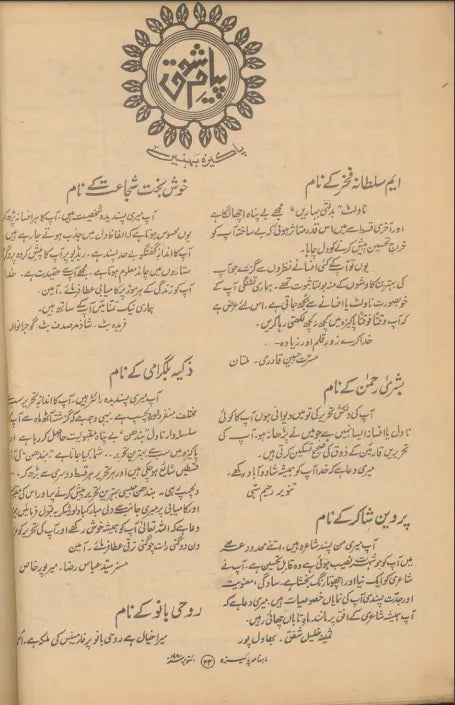 پیام شوق
پاکیزہ بہنیں
ایم سلطانہ فخر کے نام
ناولٹ "بدلتی بہاریں" مجھے بے پناہ اچھا لگا ہے
اور آخری قسط سے میں اس قدر متاثر ہوئی کہ بے ساختہ آپ کو
خراجِ تحسین پیش کرنے کو دل چاہا۔
یوں تو آپ کے کئی افسانے نظروں سے گزرے جو آپ
کی بہترین کاوشوں کے منہ بولتا ثبوت تھے۔ ہماری تشنگی آپ کے
خوبصورت ناولٹ یا افسانے سے بجھ جاتی ہے، اس لئے عرض ہے
کہ آپ وقتاً فوقتاً پاکیزہ میں کچھ نہ کچھ لکھتی رہا کریں۔
خدا کرے زورِ قلم اور زیادہ۔
مسرت جبین قادری۔ ملتان
بشریٰ رحمٰن کے نام
آپ کی دلکش تحریر کی تو میں دیوانی ہوں آپ کا کوئی
ناول یا افسانہ ایسا نہیں ہے جو میں نے پڑھا نہ ہو۔ آپ کی
تحریریں قارئین کے ذوق کی صحیح تسکین کرتی ہیں۔
میری دعا ہے کہ خدا آپ کو ہمیشہ شاد و آباد رکھے۔
تنویر رحیم
پروین شاکر کے نام
آپ میری من پسند شاعرہ ہیں، اتنے محدود عرصے
میں آپ کو جو شہرت نصیب ہوئی ہے وہ قابلِ تحسین ہے۔ آپ نے
شاعری کو ایک نیا اور اچھوتا رنگ بخشا ہے۔ سادگی، معنویت
اور جدت پسندی آپ کی نمایاں خصوصیات ہیں۔ میری دعا ہے کہ
آپ ہمیشہ شاعری کے افق پر مانند ماہِ تاباں چھائی رہیں۔
ثمینہ خلیل شفق۔ بھاول پور
خوش بخت شجاعت کے نام
آپ میری پسندیدہ شخصیت ہیں۔ آپ کا ہر افسانہ پڑھ کر
یوں محسوس ہوتا ہے کہ الفاظ دل میں جذب ہوتے جا رہے ہیں
آپ کا اندازِ گفتگو بے حد پسند ہے۔ ریڈیو پر آپ کا پیش کردہ
ستاروں میں چاند معلوم ہوتا ہے۔ مجھے آپ سے عقیدت ہے۔ خدا
آپ کو زندگی کے ہر موڑ پر کامیابی عطا فرمائے۔ آمین۔
ہماری نیک تمنائیں آپ کے ساتھ ہیں۔
فریدہ بٹ۔ شاذمہ صدف بٹ گوجرانوالہ
ذکیہ بلگرامی کے نام
آپ میری پسندیدہ رائٹر ہیں۔ آپ کا اندازِ تحریر سب سے
مختلف، منفرد اور دلچسپ ہے۔ یہی وجہ ہے کہ گزشتہ آٹھ ماہ سے آپ
سلسلہ وار ناول "بندھن" بے پناہ مقبولیت حاصل کر رہا ہے اور
پاکیزہ میں سب سے بہترین تحریر شمار کیا جاتا ہے۔ "بندھن" کی
قسطیں شائع ہو چکی ہیں اور ہر تحریر ہر قسط دوسری سے بڑھ کر
دلچسپ رہی۔ بندھن جیسی بہترین تحریر پیش کرنے پر اور اس کی
اور کامیابی پر میری جانب سے دلی مبارکباد اور شکریہ قبول فرمائیں
دعا ہے کہ اللہ تعالیٰ آپ کو ہمیشہ خوش رکھے اور آپ کی تحریر کو
دن دوگنی رات چوگنی ترقی عطا فرمائے۔ آمین
مسز سید عباس رضا۔ میرپور خاص
روحی بانو کے نام
میرا خیال ہے روحی بانو پرفارمینس کی ملکہ ہے۔
ماہنامہ پاکیزہ ۲۳ اکتوبر ۱۹۸۰ء